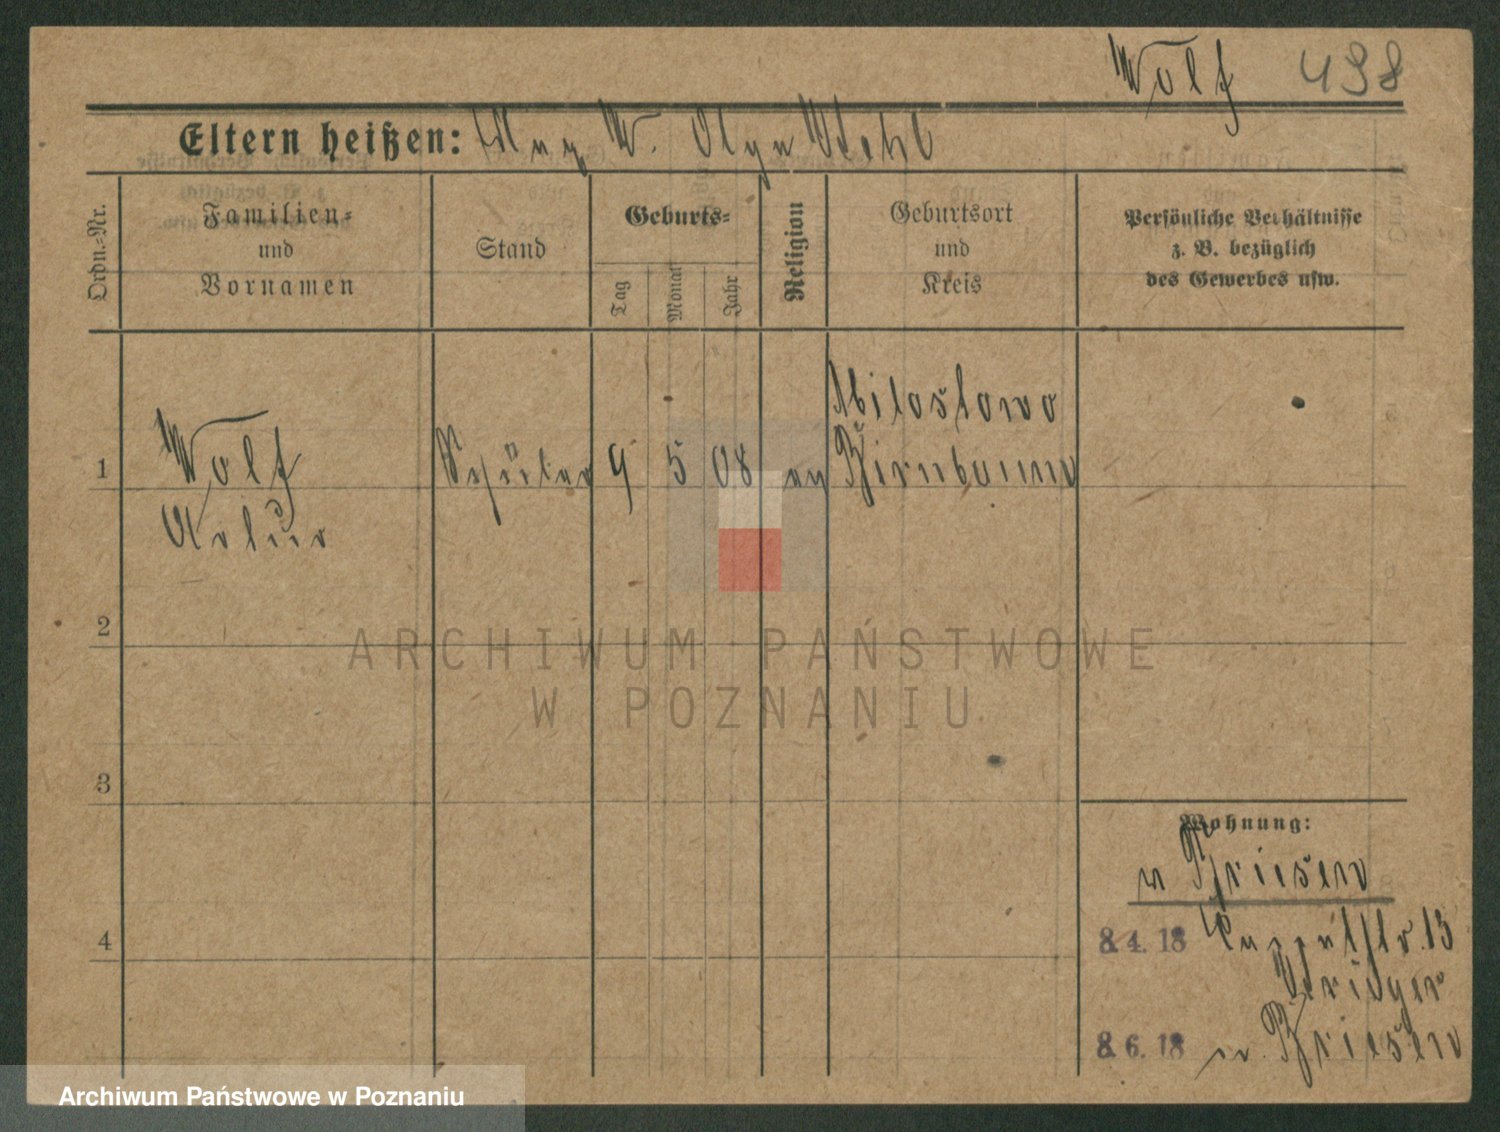 Wolf 498
Eltern heißen: W.
Ordn.-Nr.
Familien-
und
Vornamen
Stand
Geburts-
Tag
Monat
Jahr
Religion
Geburtsort
und
Kreis
Persönliche Verhältnisse
z. B. bezüglich
des Gewerbes usw.
1
Wolf
Artur
Schüler
9 5 08
ev
Miloslowo
Birnbaum
2
3
4
Wohnung:
n Briesen
8. 4. 18 13
8. 6. 18 n. Briesen
ARCHIWUM PAŃSTWOWE
W POZNANIU
Archiwum Państwowe w Poznaniu